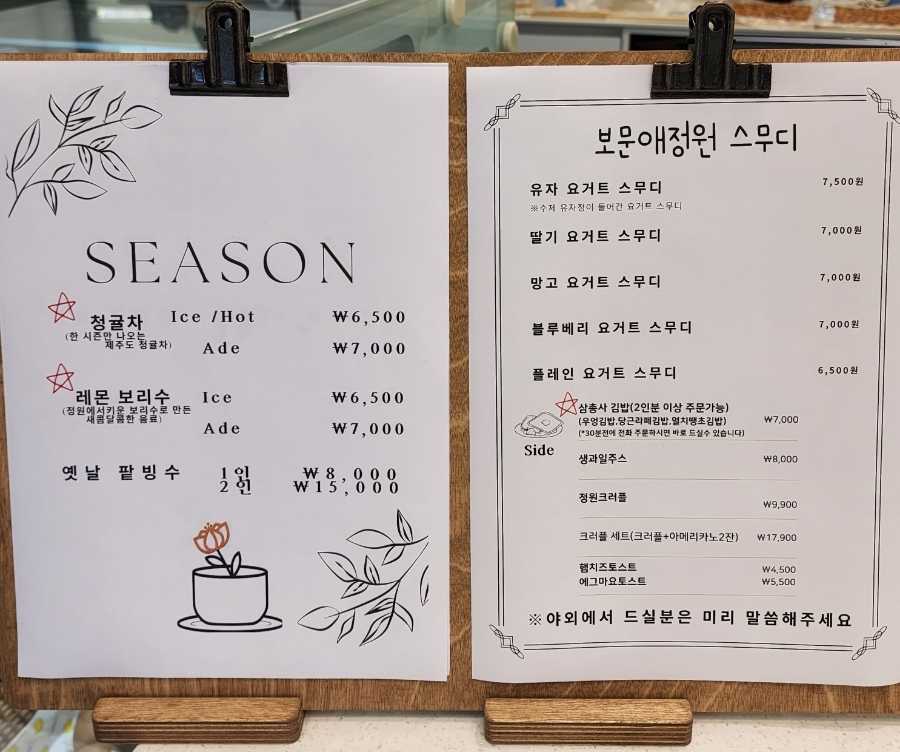 SEASON
청귤차 Ice /Hot ₩6,500
(한 시즌만 나오는
제주도 청귤차)
Ade ₩7,000
레몬 보리수 Ice ₩6,500
(정원에서키운 보리수로 만든
새콤달콤한 음료)
Ade ₩7,000
옛날 팥빙수 1인 ₩8,000
2인 ₩15,000
보문애정원 스무디
유자 요거트 스무디 7,500원
※수제 유자청이 들어간 요거트 스무디
딸기 요거트 스무디 7,000원
망고 요거트 스무디 7,000원
블루베리 요거트 스무디 7,000원
플레인 요거트 스무디 6,500원
Side
삼총사 김밥(2인분 이상 주문가능)
(우엉김밥,당근라페김밥,멸치땡초김밥) ₩7,000
(*30분전에 전화 주문하시면 바로 드실수 있습니다)
생과일주스 ₩8,000
정원크러플 ₩9,900
크러플 세트(크러플+아메리카노2잔) ₩17,900
햄치즈토스트 ₩4,500
에그마요토스트 ₩5,500
※야외에서 드실분은 미리 말씀해주세요